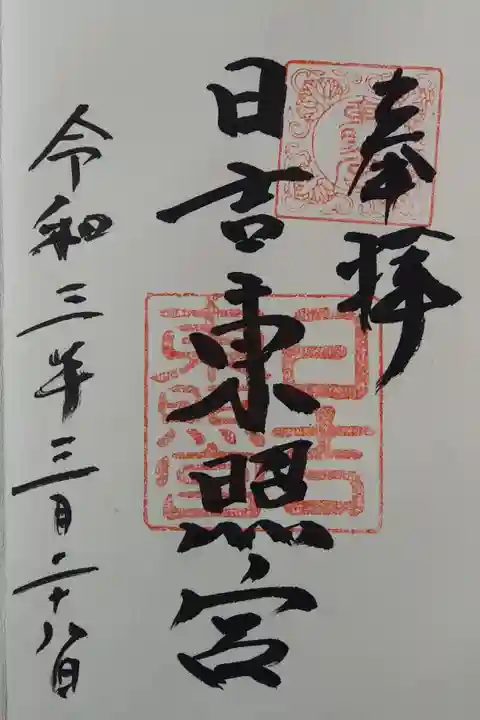 奉拝
日吉東照宮
日吉東照宮
令和三年三月二十八日